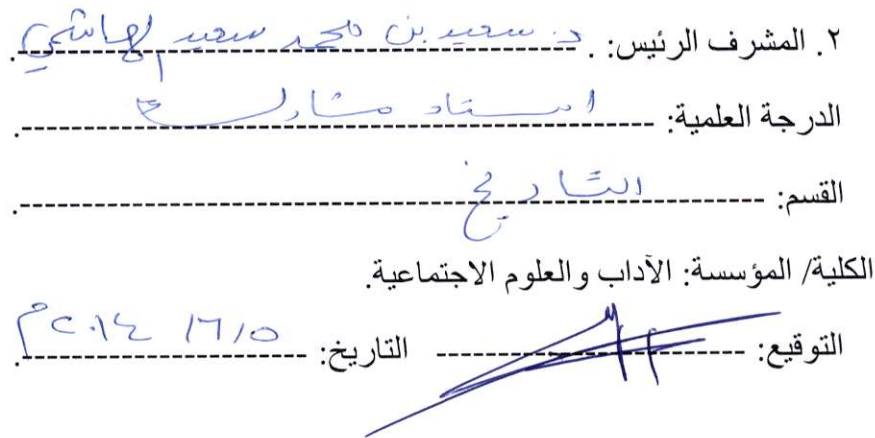 ٢. المشرف الرئيس: د. سعيد بن محمد سعيد الهاشمي.
الدرجة العلمية: استاذ مشارك.
القسم: التاريخ.
الكلية/ المؤسسة: الآداب والعلوم الاجتماعية.
التوقيع: التاريخ: ٥/٦/٢٠١٤م.